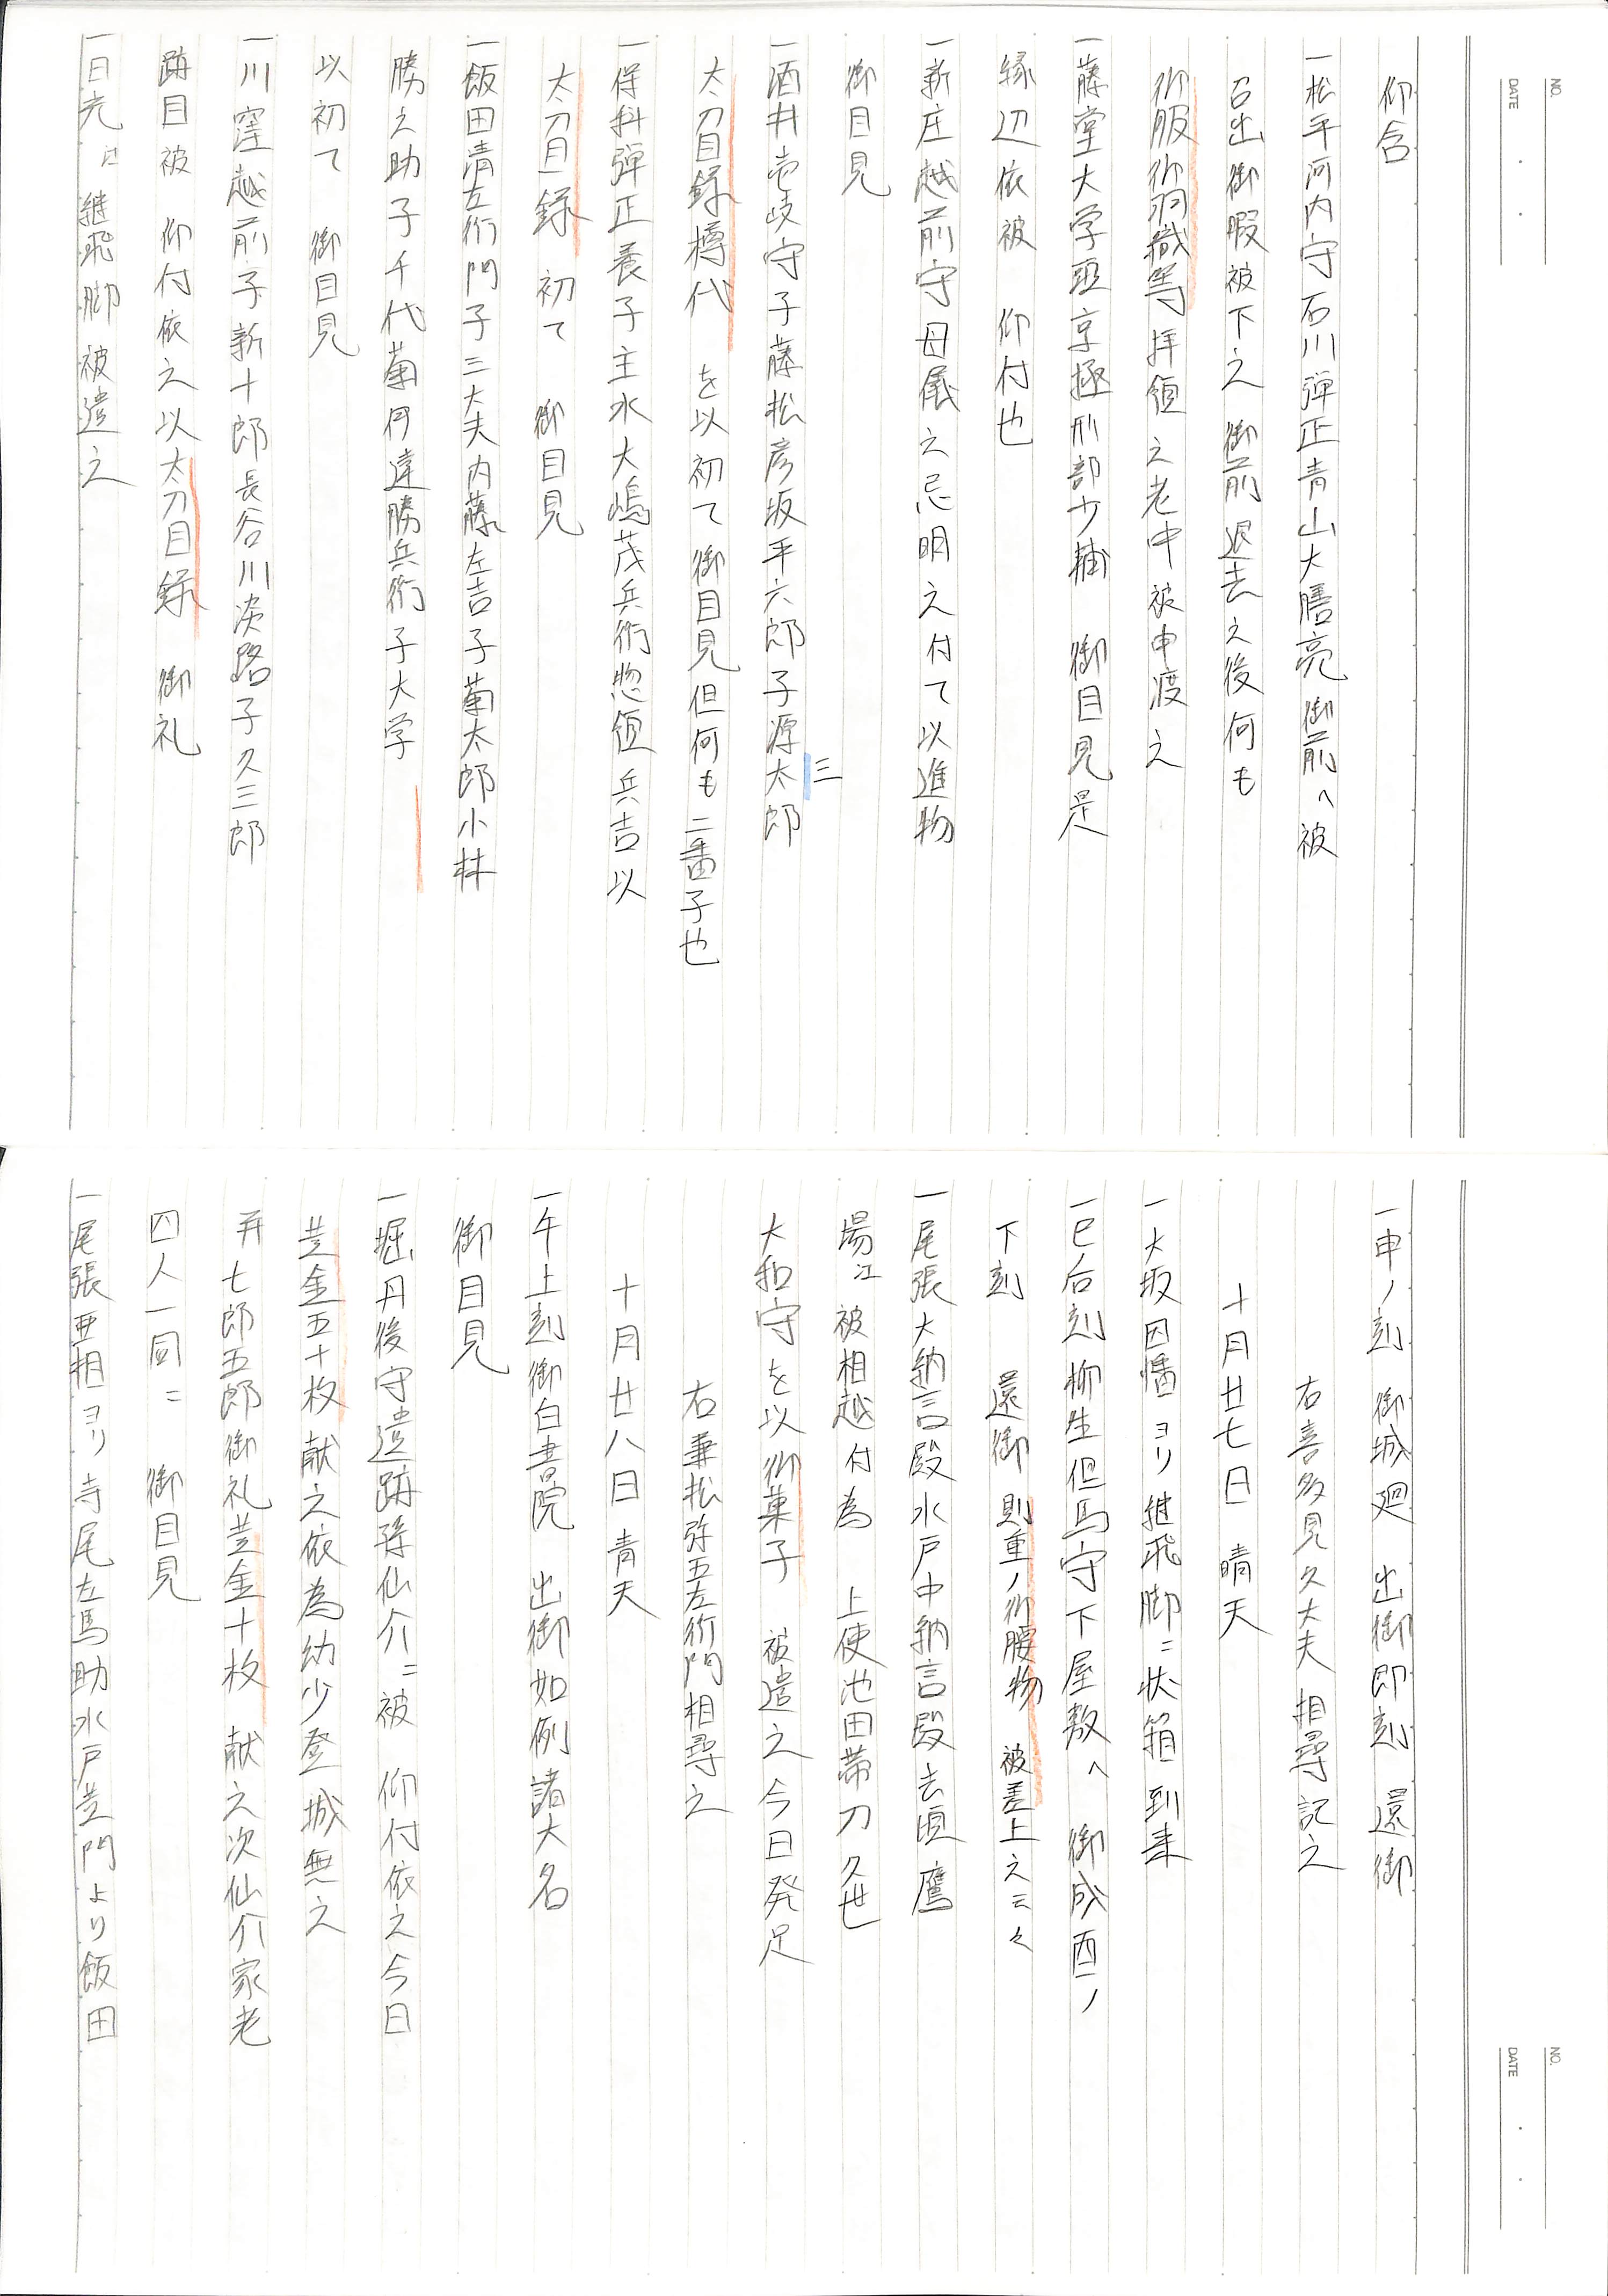 NO.
DATE
仰含
一松平河内守石川弾正青山大膳亮 御前へ被
召出御暇被下之 御前退去之後何も
御服御羽織等拝領之老中被申渡之
一藤堂大学頭京極刑部少輔 御目見是
縁辺依被 仰付也
一新庄越前守母儀之忌明之付て以進物
御目見
一酒井壱岐守子藤松彦坂平六郎子源太郎
三
太刀目録樽代 を以初て御目見但何も二番子也
一保科弾正養子主水大嶋茂兵衛惣領兵吉以
太刀目録 初て 御目見
一飯田清左衛門子三大夫内藤左吉子菊太郎小林
勝之助子千代菊円達勝兵衛子大学
以初て 御目見
一川窪越前子新十郎長谷川淡路子久三郎
跡目被 仰付依之以太刀目録 御礼
一日光江継飛脚被遣之
NO.
DATE
一申ノ刻 御城廻 出御即刻 還御
右喜多見久大夫相尋記之
十月廿七日 晴天
一大坂因幡ヨリ継飛脚ニ状箱到来
一巳后刻柳生但馬守下屋敷へ 御成酉ノ
下刻 還御 則重ノ御腰物 被差上之云々
一尾張大納言殿水戸中納言殿去頃鷹
場江被相越付為 上使池田帯刀久世
大和守を以御菓子 被遣之今日発足
右兼松弥五左衛門相尋之
十月廿八日 青天
一午上刻御白書院 出御如例諸大名
御目見
一堀丹後守遺跡孫仙介ニ被 仰付依之今日
黄金五十枚献之依為幼少登城無之
并七郎五郎御礼黄金十枚 献之次仙介家老
四人一同ニ 御目見
一尾張亜相ヨリ寺尾左馬助水戸黄門より飯田